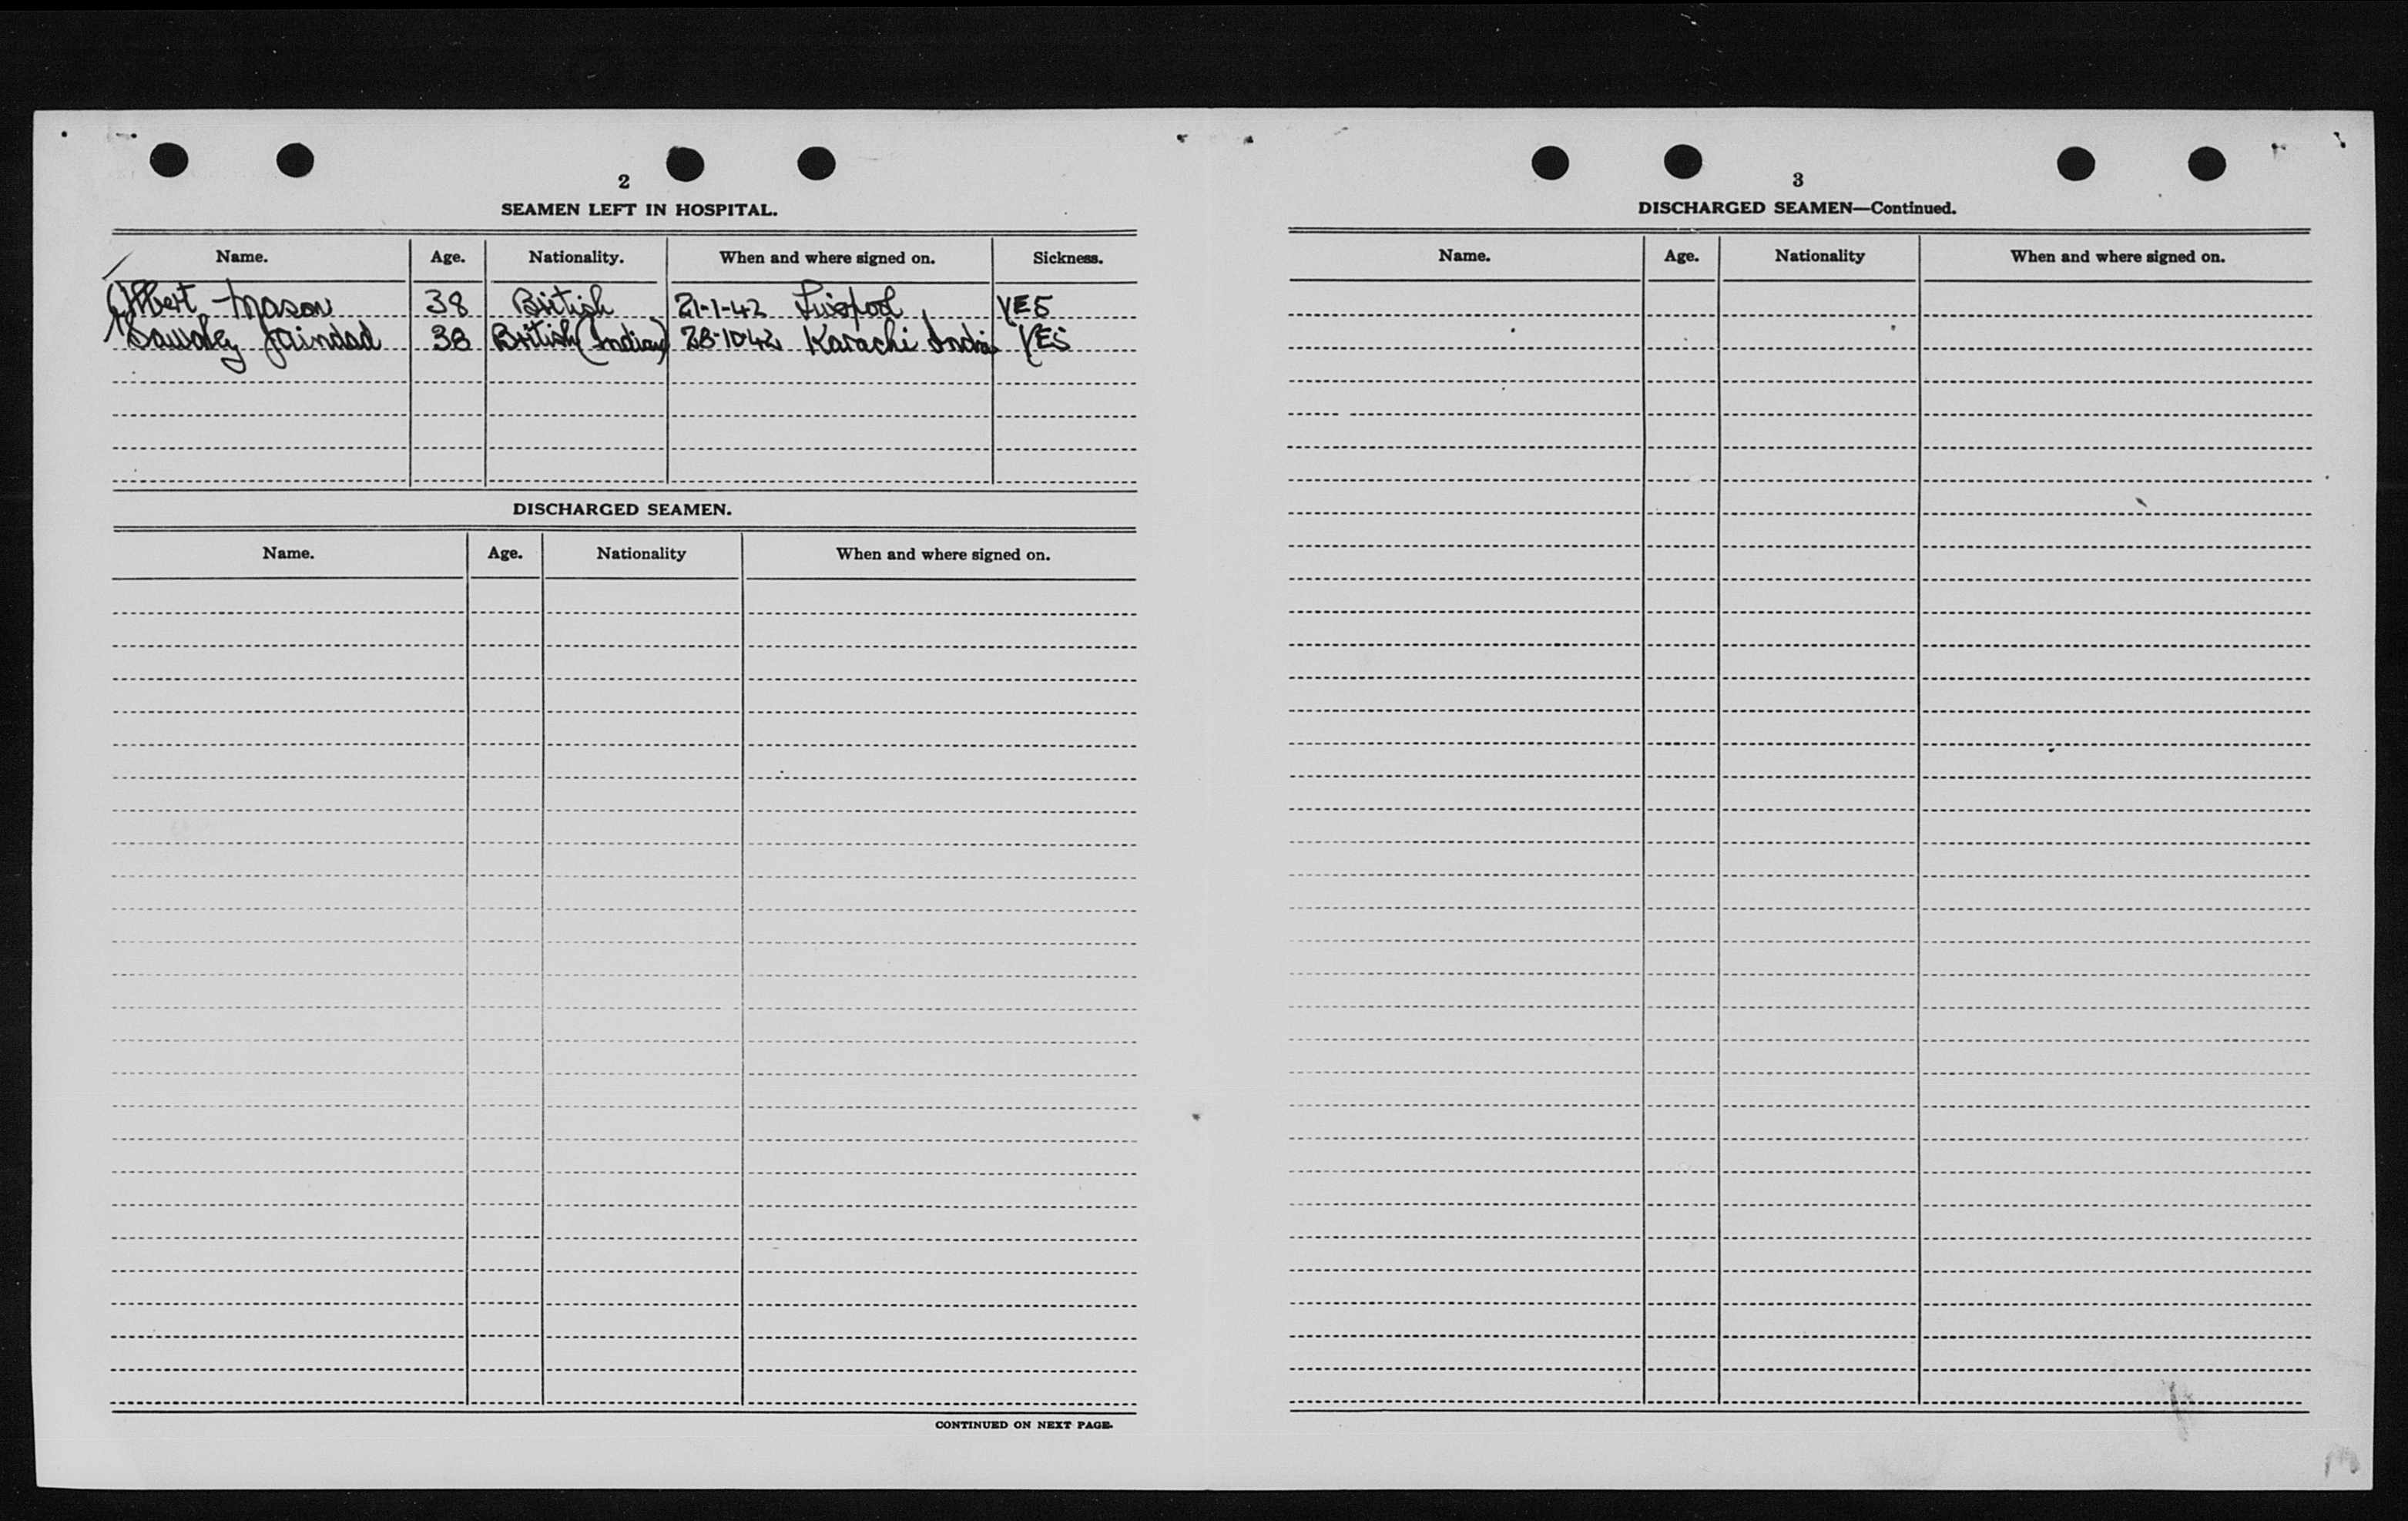 2
SEAMEN LEFT IN HOSPITAL.
Name. Age. Nationality. When and where signed on. Sickness.
Albert Mason 38 British 21-1-42 Liverpool YES
Jaindad 38 British (Indian) 28-10-42 Karachi India YES
DISCHARGED SEAMEN.
Name. Age. Nationality When and where signed on.
CONTINUED ON NEXT PAGE.
3
DISCHARGED SEAMEN—Continued.
Name. Age. Nationality When and where signed on.